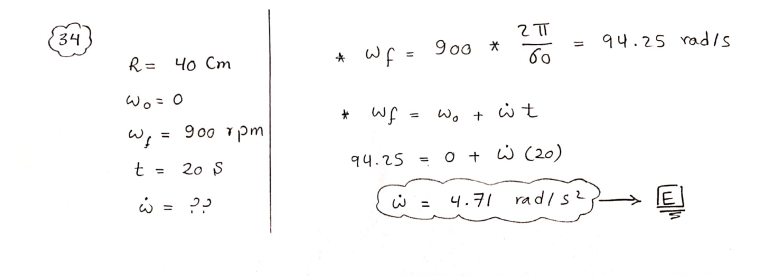 34
R = 40 Cm
ω₀ = 0
ω_f = 900 rpm
t = 20 S
ω̇ = ??
* ω_f = 900 * 2π/60 = 94.25 rad/s
* ω_f = ω₀ + ω̇ t
94.25 = 0 + ω̇ (20)
ω̇ = 4.71 rad/s² → E